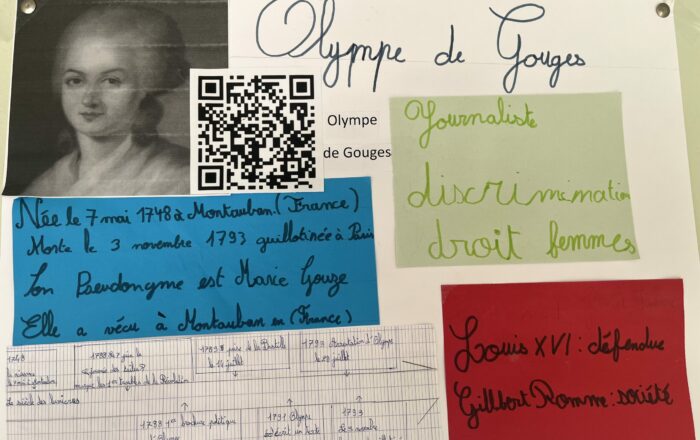 Olympe de Gouges
Olympe
de Gouges
Journaliste
discrimination
droit femmes
Née le 7 mai 1748 à Montauban (France)
Morte le 3 novembre 1793 guillotinée à Paris
Son Pseudonyme est Marie Gouze
Elle a vécu à Montauban en (France)
Louis XVI : défendue
Gillbert Romme : société
1748
1789 prise de la Bastille
le 14 juillet
1793 d'Olympe
le 20 juillet
de la Révolution
Le siècle des lumières
1788 1er brochure politique
d'Olympe
1791 Olympe
1793
le 3 novembre